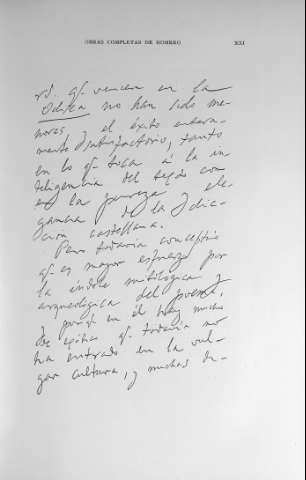 OBRAS COMPLETAS DE HOMERO XLI
vd. q. vencer en la
Odisea no han sido me-
nores, y el éxito entera-
mente satisfactorio, tanto
en lo q. toca á la in
teligencia del texto como
en la pureza y ele-
gancia de la dic-
ción castellana.
Pero todavía conceptúo
q. es mayor esfuerzo por
la índole mitológica y
arqueológica del poema,
y porq. en él hay mucho
de épico q. todavía no
ha entrado en la vul-
gar cultura, y muchas de-